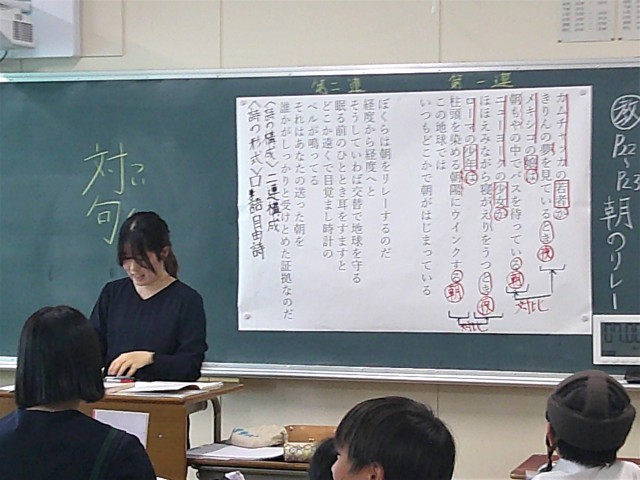 教
P22〜P23
朝のリレー
第一連
カムチャッカの若者が
きりんの夢を見ているとき
夜
メキシコの娘は
朝もやの中でバスを待っている
朝
対比
ニューヨークの少女が
ほほえみながら寝がえりをうつとき
夜
ローマの少年は
柱頭を染める朝陽にウインクする
朝
対比
この地球では
いつもどこかで朝がはじまっている
第二連
ぼくらは朝をリレーするのだ
経度から経度へと
そうしていわば交替で地球を守る
眠る前のひととき耳をすますと
どこか遠くで目覚まし時計の
ベルが鳴ってる
それはあなたの送った朝を
誰かがしっかりと受けとめた証拠なのだ
〈詩の構成〉二連構成
〈詩の形式〉口語自由詩
対句
つい